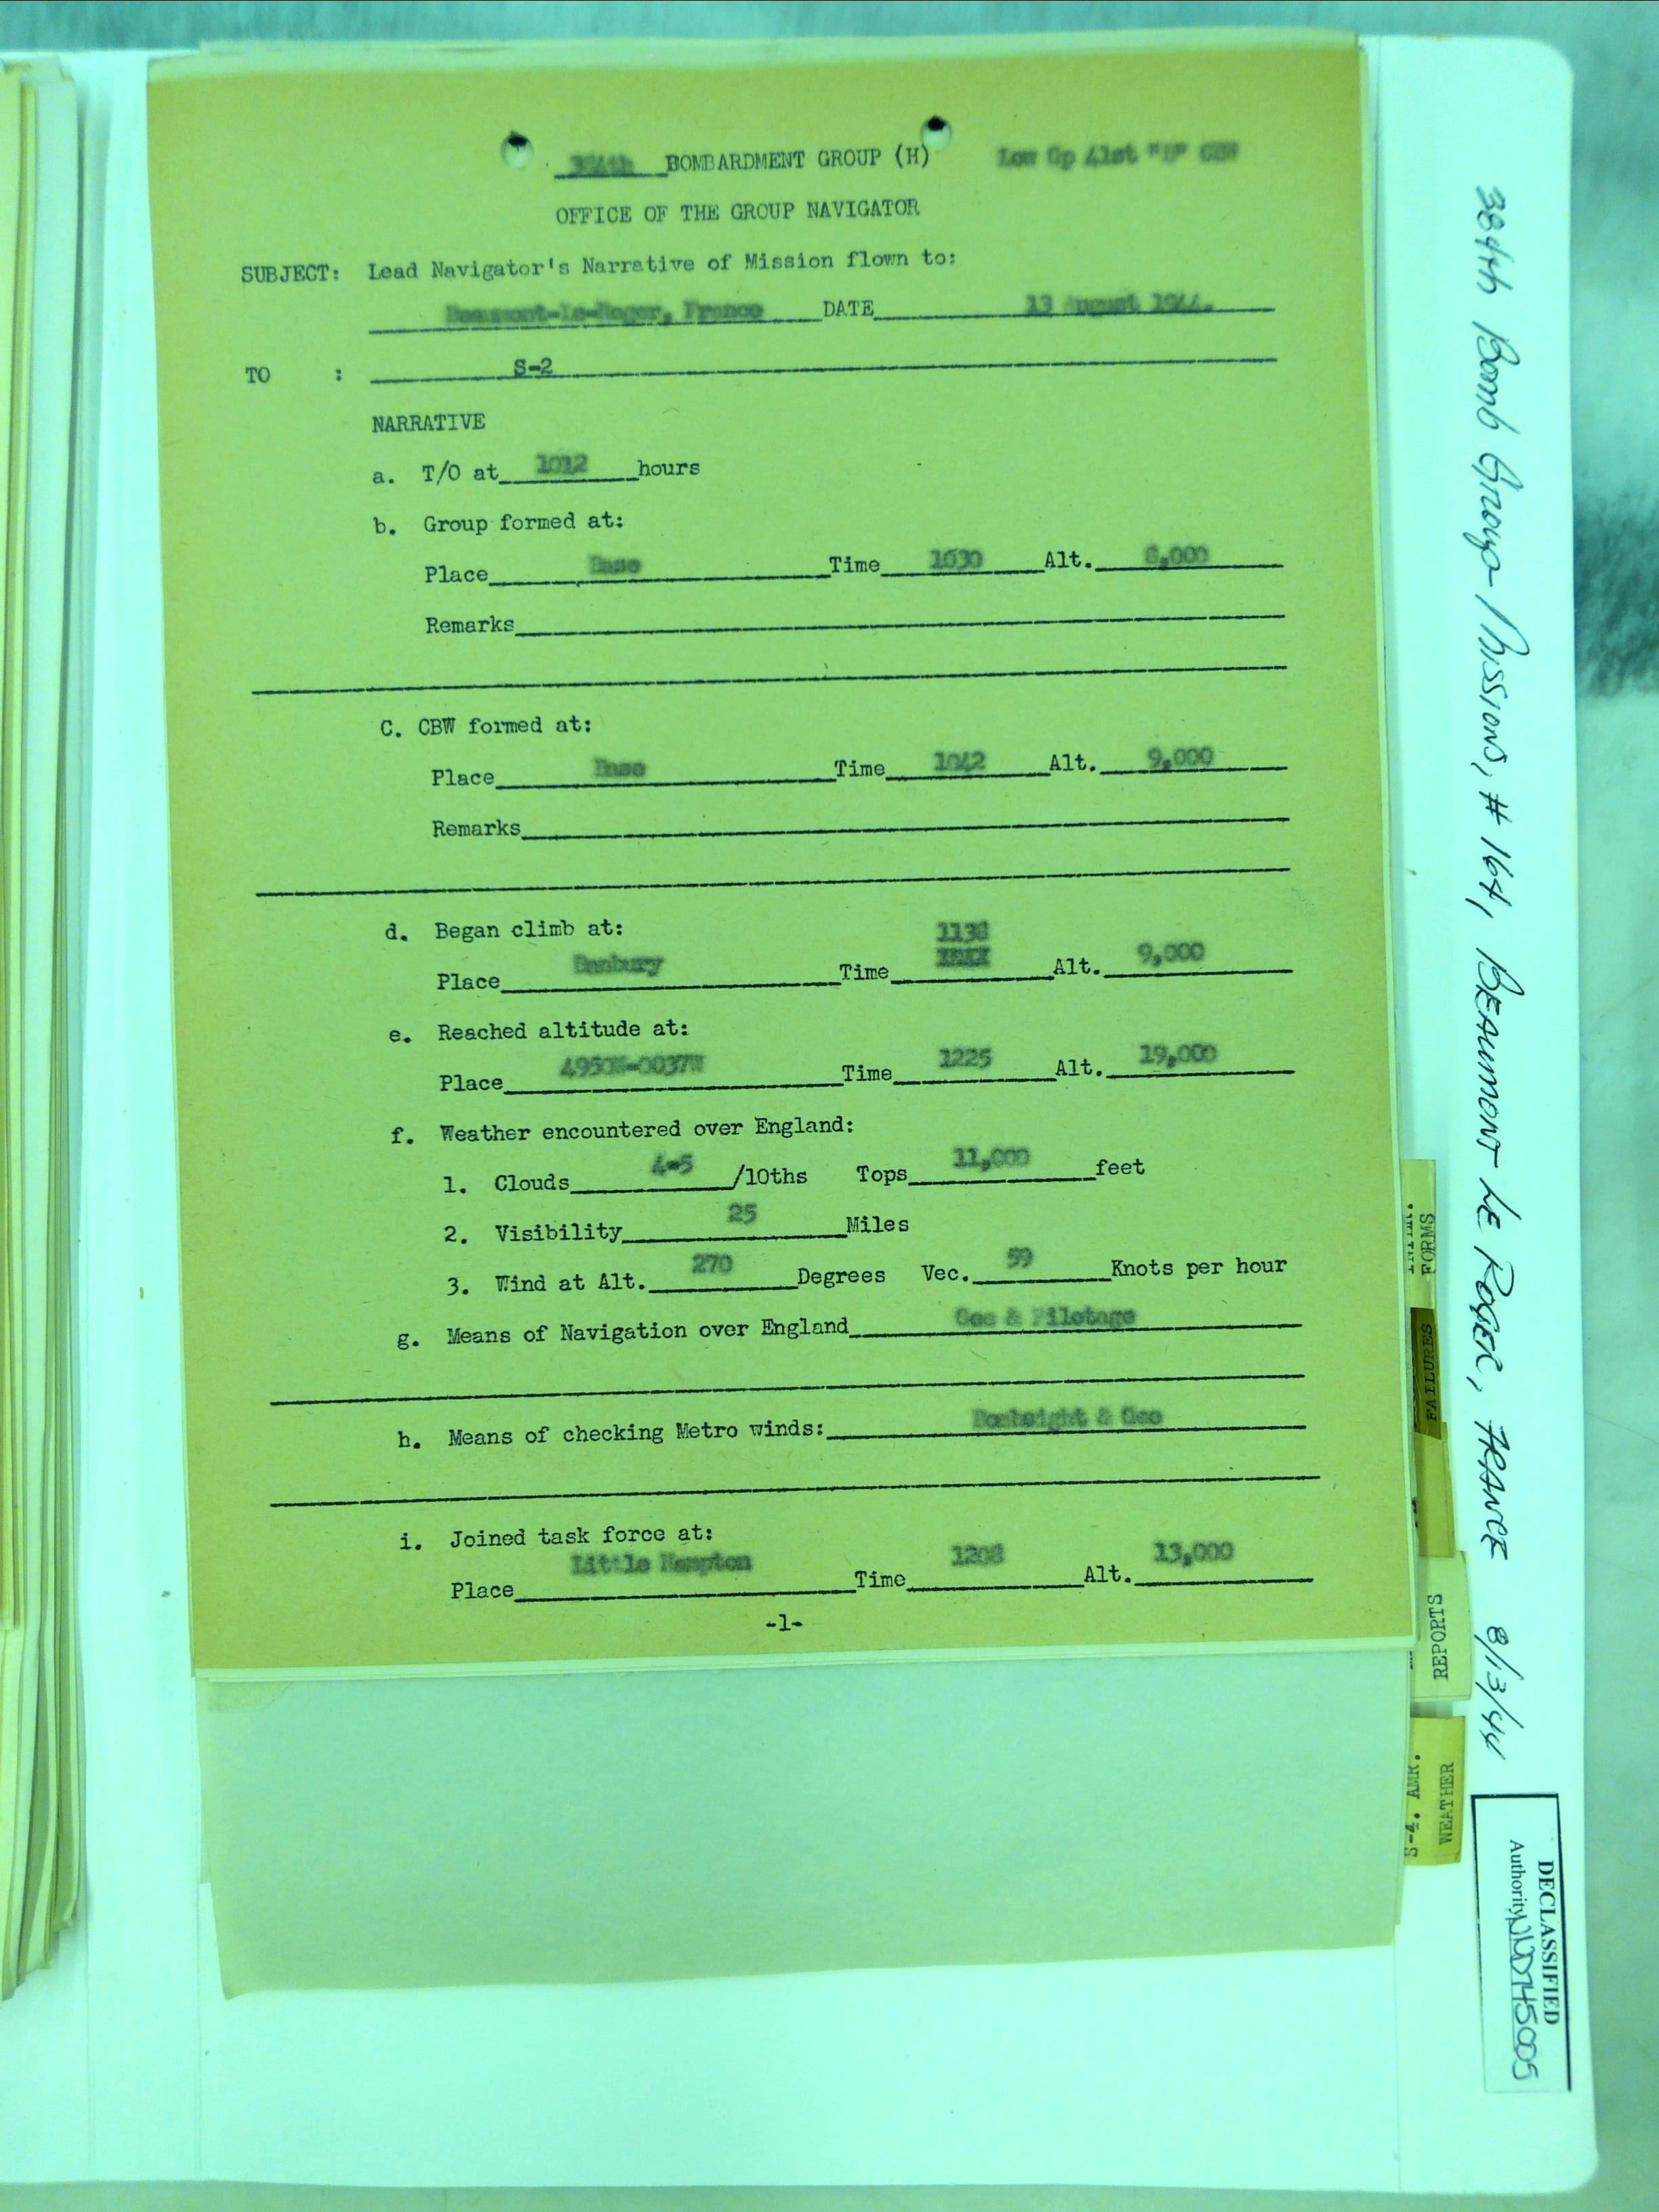 384th BOMBARDMENT GROUP (H) Low Gp 41st "B" CBW
OFFICE OF THE GROUP NAVIGATOR
SUBJECT: Lead Navigator's Narrative of Mission flown to:
Beaumont-Le-Roger, France DATE 13 August 1944.
TO : S-2
NARRATIVE
a. T/O at 1012 hours
b. Group formed at:
Place Base Time Alt. 8,000
Remarks
C. CBW formed at:
Place Base Time 1042 Alt. 9,000
Remarks
d. Began climb at:
1138
Place Banbury Time Alt. 9,000
e. Reached altitude at:
Place 4950N-0037W Time 1225 Alt. 19,000
f. Weather encountered over England:
1. Clouds 4-5 /10ths Tops 11,000 feet
2. Visibility 25 Miles
3. Wind at Alt. 270 Degrees Vec. 59 Knots per hour
g. Means of Navigation over England Gee & Pilotage
h. Means of checking Metro winds: Bombsight & Gee
i. Joined task force at:
Place Little Hampton Time 1208 Alt. 13,000
-1-
384th Bomb Group Missions, # 164, BEAUMONT LE ROGER, FRANCE 8/13/44
FORMS
FAILURES
REPORTS
S-4. AMR.
WEATHER
DECLASSIFIED
Authority NND745005